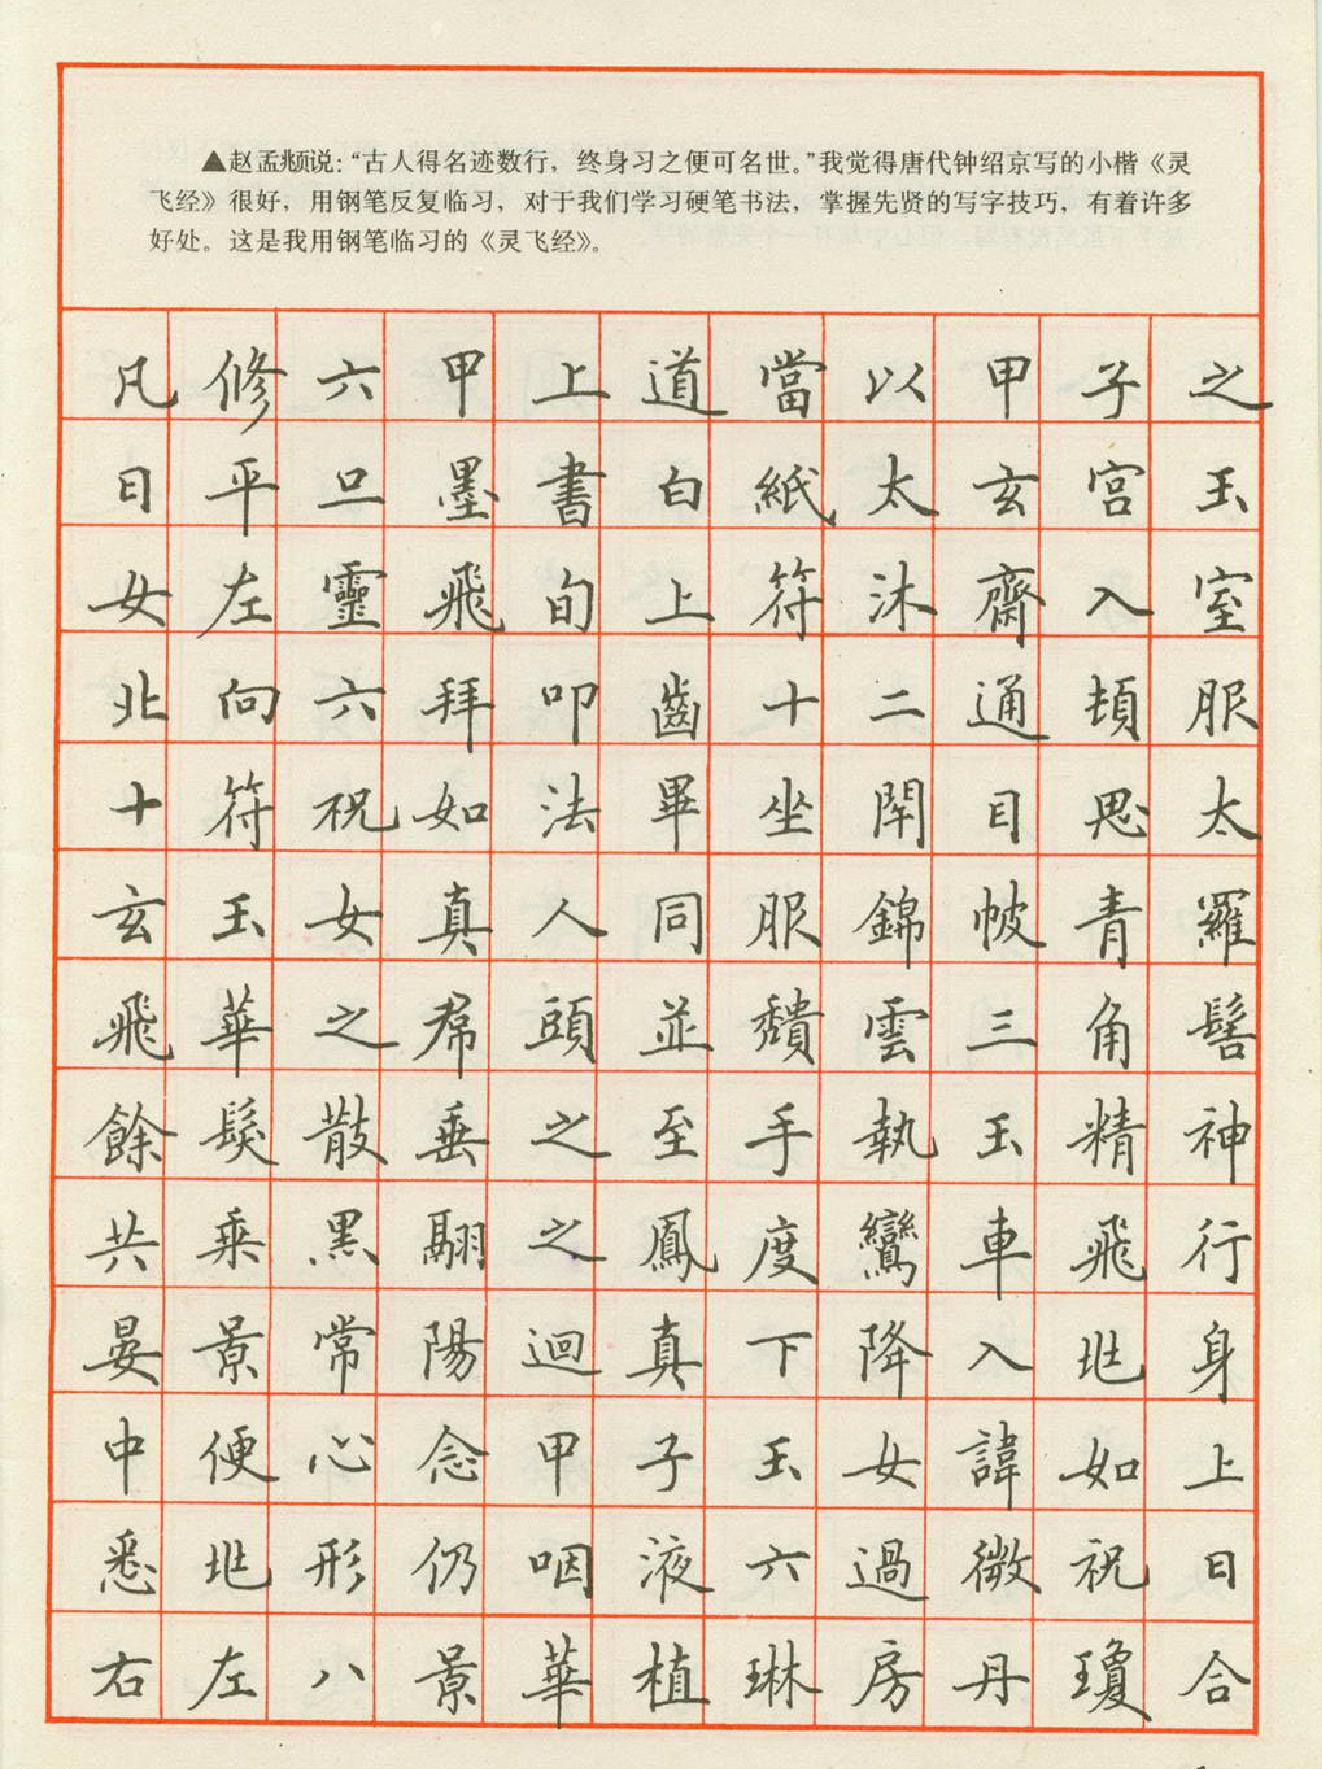 ▲赵孟頫说：“古人得名迹数行，终身习之便可名世。”我觉得唐代钟绍京写的小楷《灵
飞经》很好，用钢笔反复临习，对于我们学习硬笔书法，掌握先贤的写字技巧，有着许多
好处。这是我用钢笔临习的《灵飞经》。
凡修六甲上道當以甲子之
日平旦墨書白紙太玄宮玉
女左靈飛旬上符沐齋入室
北向六拜叩齒十二通頓服
十符祝如法畢坐閉目思太
玄玉女真人同服錦帔青羅
飛華之帬頭並頹雲三角髻
餘髮散垂之至手執玉精神
虎乘黑翮之鳳度鸞車飛行
晏景常陽迴真下降入兆身
中便心念甲子玉女諱如上
悉兆形仍咽液六過微祝日
右左八景華植琳房丹瓊合